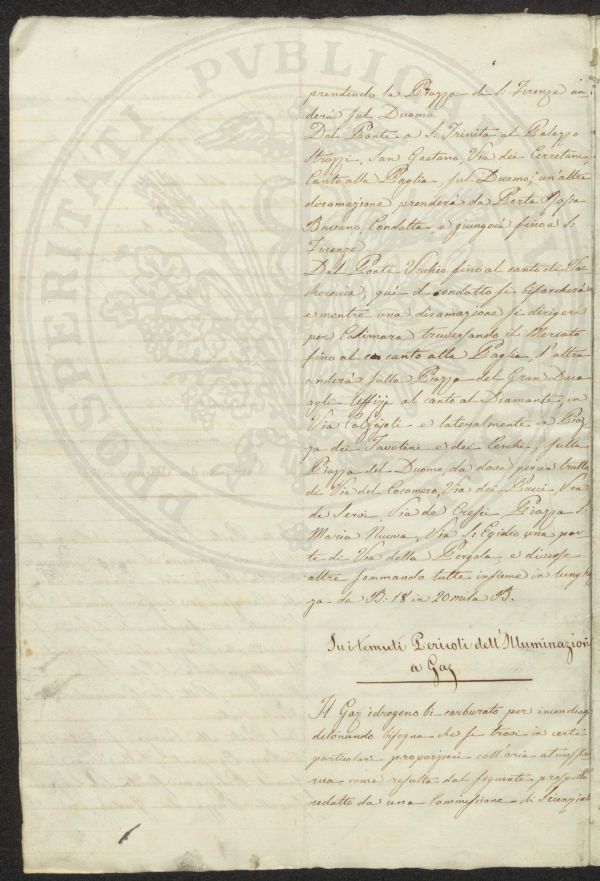 PROSPERITATI PVBLICAE
prendendo la Piazza di S. Firenze an=
derà sul Duomo.
Dal Ponte a S. Trinita al Palazzo
Strozzi, San Gaetano, Via dei Cerretani,
Canto alla Paglia, sul Duomo; un'altra
diramazione prenderà da Porta Rossa
Baccano, Condotta e giungerà fino a S.
Firenze
Dal Ponte Vecchio fino al canto di Vac
chereccia, quì il condotto si biforcherà
e mentre una diramazione si dirigerà
per Calimara traversando il Mercato
fino al canto alla Paglia, l'altra
anderà sulla Piazza del Gran Duca
agli Uffizj al canto al Diamante, in
Via Calzajoli e lateralmente a Piaz
za dei Tavolini e dei Cerchi, sulla
Piazza del Duomo, da dove per un tratto
di Via del Cocomero, Via dei Pucci, Via
de Servi, Via de Cresci, Piazza S.
Maria Nuova, Via S. Egidio una par
te di Via della Pergola, e diverse
altre sommando tutte insieme in lunghez
za da B. 18 in 20 mila B.
Sui temuti Pericoli dell'Illuminazione
a Gaz
Il Gaz idrogeno bi-carburato per incendiarsi
detonando bisogna che si trovi in certe
particolari proporzioni coll'aria atmosfe
rica come resulta dal seguente prospetto
redatto da una Commissione di Scienziati